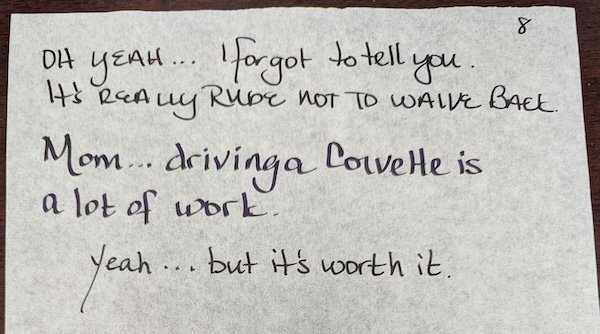 8
OH YEAH... I forgot to tell you.
It's REALLY RUDE NOT TO WAIVE BACK.
Mom... driving a Corvette is
a lot of work.
Yeah... but it's worth it.